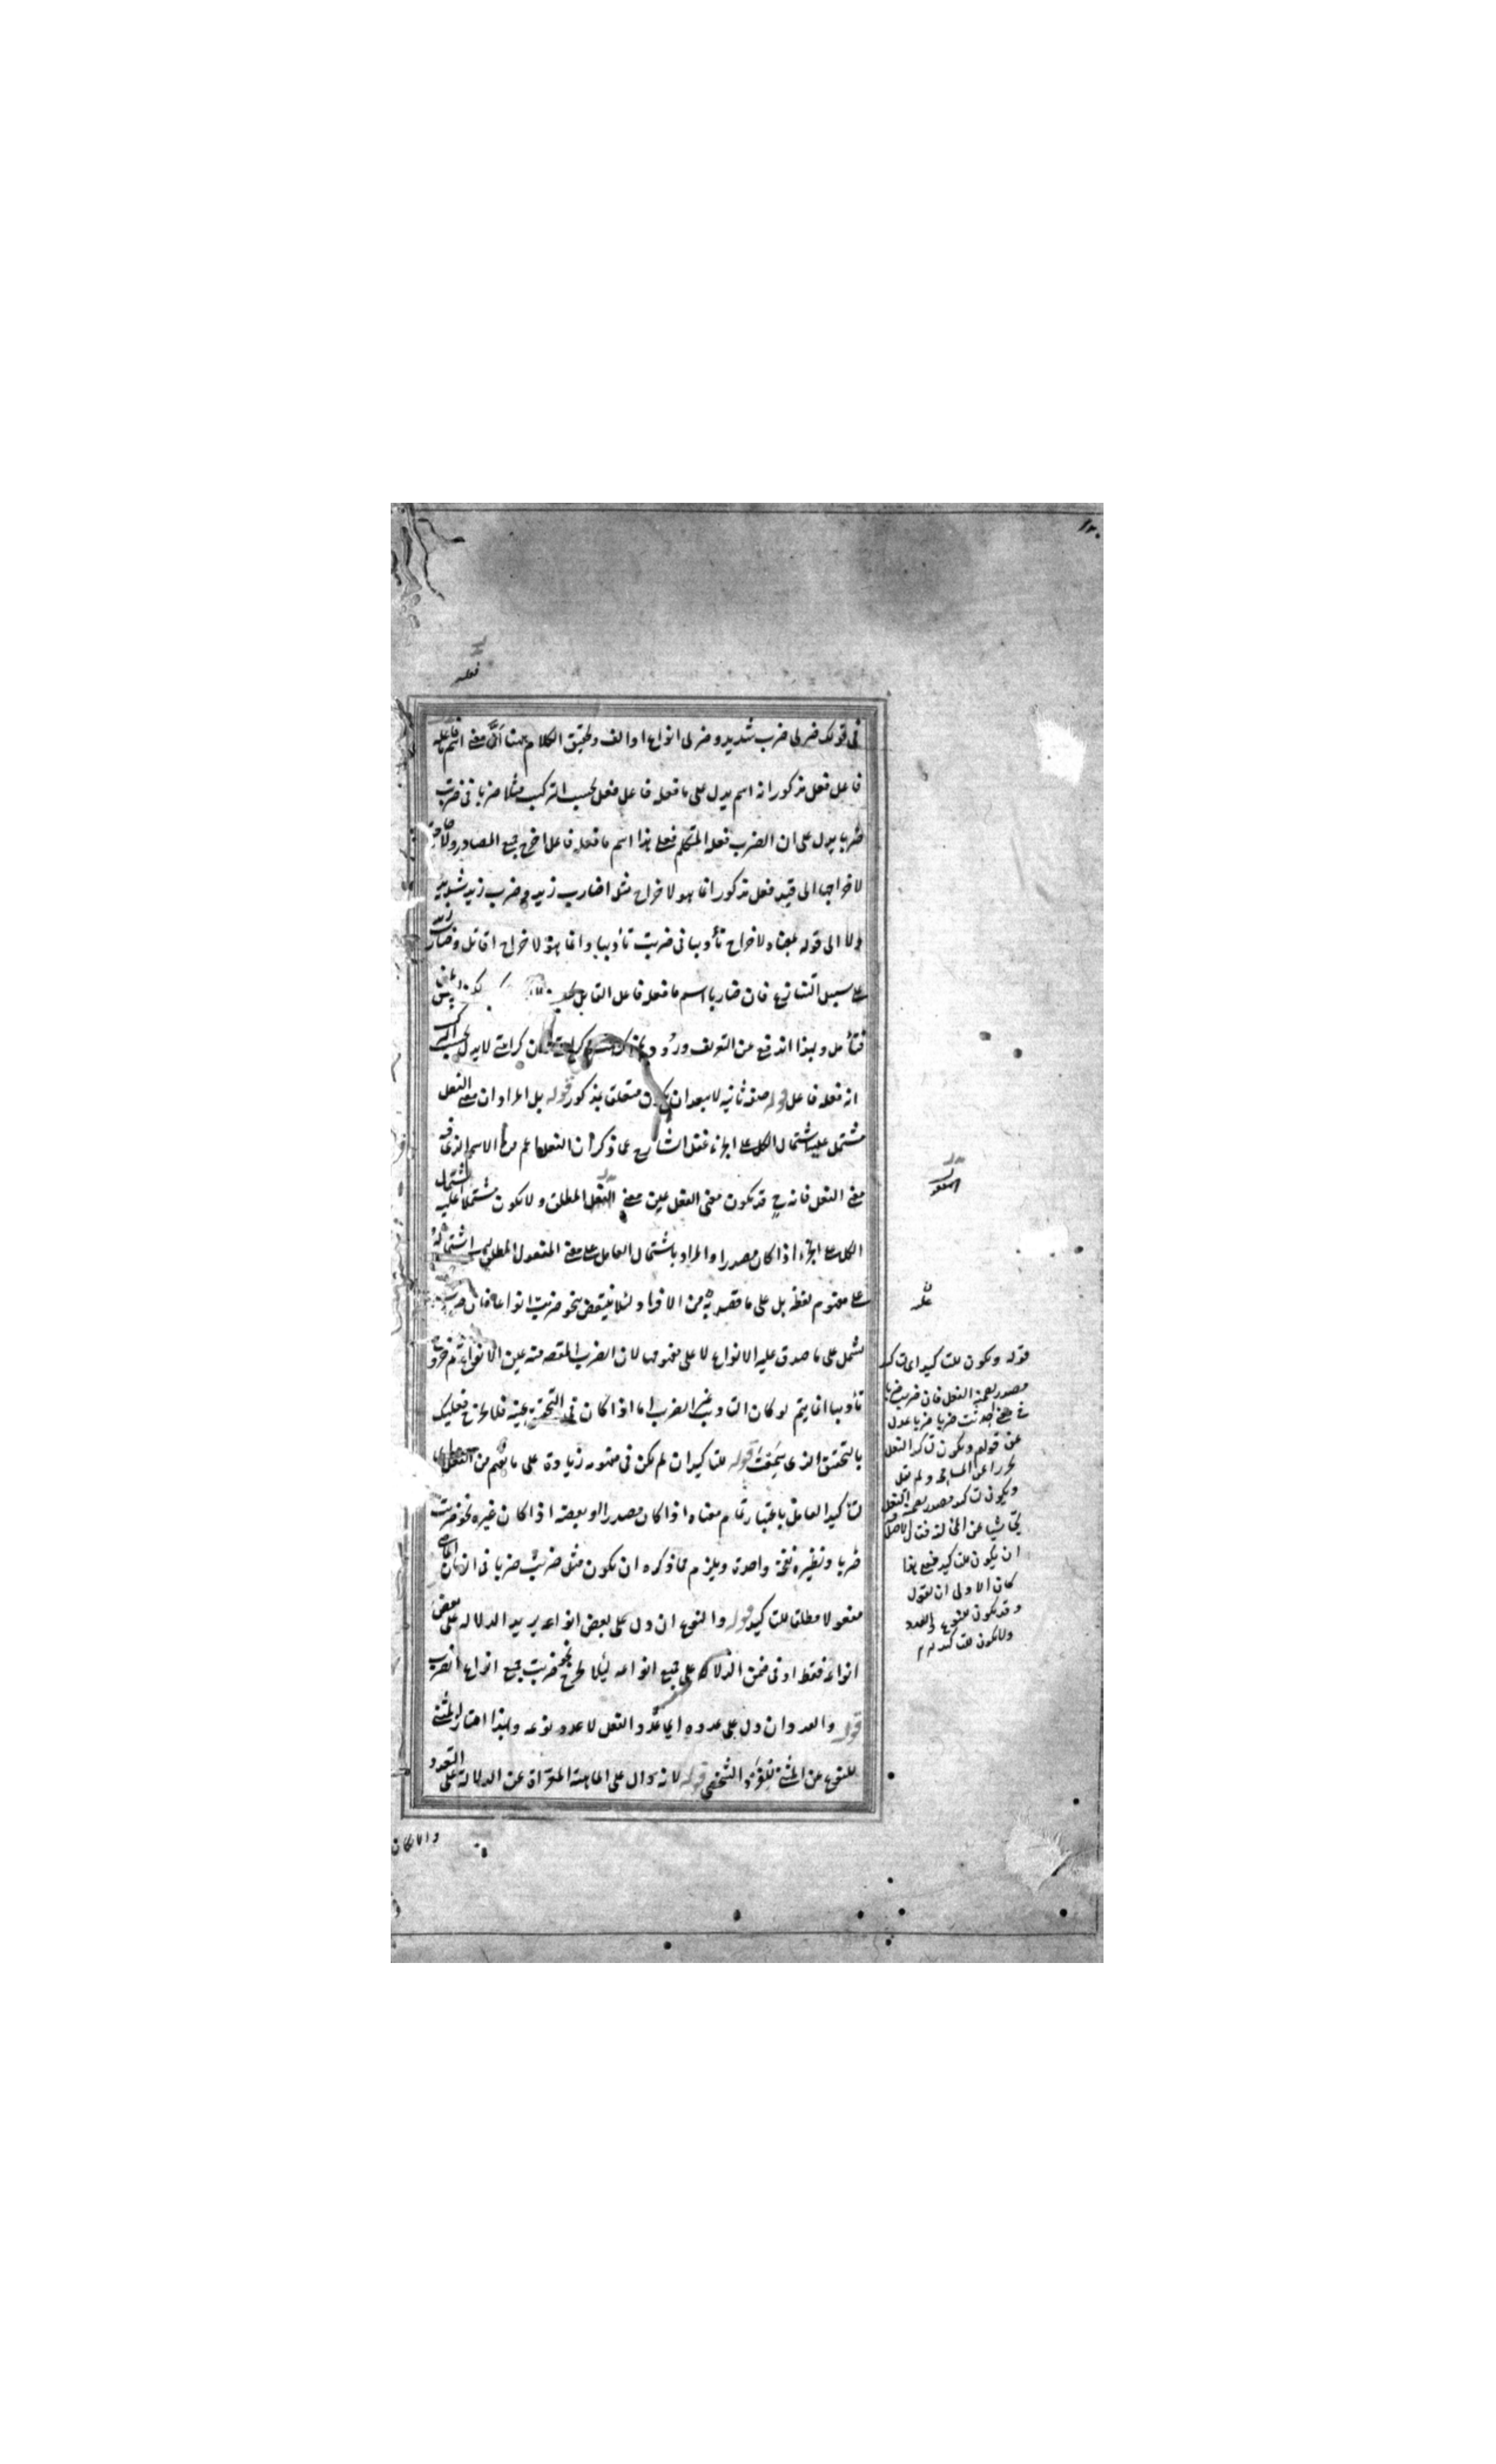 ١٢٠
فعله
فى قولك ضربى ضرب شديد وضربى انواع او الف وتحقيق الكلام ههنا ان معنى اسم ما فعله
فاعل فعل مذكور انه اسم يدل على ما فعله فاعل فعل بحسب التركيب مثلا ضربا فى ضربت
ضربا يدل على ان الضرب فعله المتكلم فعلى هذا اسم ما فعله فاعل اخرج جميع المصادر ولا حاجة
لاخراجها الى قيد فعل مذكور انما هو لاخراج مثل اضارب زيد وضرب زيد شديد
ولا الى قوله بمعناه لاخراج تأديبا فى ضربت تأديبا وانما هو لاخراج اقاتل وضارب زيد
على سبيل التنازع فان ضاربا اسم ما فعله فاعل القابل
فتأمل وبهذا اندفع عن التعريف ورود كرهت كراهتى فان كراهتى لا يدل بحسب التركيب
انه فعله فاعل قوله صفة ثانية لا يبعد ان يكون متعلق بمذكور قوله بل المراد ان معنى الفعل
مشتمل عليه اشتمال الكل على الجزء غفل الشارح عما ذكر ان الفعل اعم من الاسم الذى فيه
معنى الفعل فانه ح قد يكون معنى الفعل عين معنى الفعل المطلق ولا يكون مشتملا عليه اشتمال
الكل على الجزء اذا كان مصدرا والمراد باشتمال العامل على معنى المفعول المطلق ليس اشتماله
على مفهوم لفظه بل على ما قصد به من الافراد لئلا ينتقض بنحو ضربت انواعا فان ضربت
يشمل على ما صدق عليه الانواع لا على مفهومها لان الضرب المقصد منه عين الانواع ثم خروج
تأديبا انما يتم لو كان التأديب غير الضرب اما اذا كان فى التحقيق عينه فلا يخرج فعليك
بالتحقيق الذى سمعت قوله للتاكيد ان لم يكن فى مفهومه زيادة على ما يفهم من الفعل
لتأكيد العامل باعتبار تمام معناه اذا كان مصدرا او بعضه اذا كان غيره نحو ضربت
ضربا ونظيره نفخة واحدة ويلزم مما ذكره ان يكون مثل ضربت ضربا فى الزمان الماضى
مفعولا مطلقا للتاكيد قوله والنوع ان دل على بعض انواعه يريد الدلالة على بعض
انواعه فقط او فى ضمن الدلالة على جميع انواعه لئلا يخرج نحو ضربت جميع انواع الضرب
قوله والعدد ان دل على عدده اى عدد الفعل لا عدد نوعه ولهذا احتار المثنى
للنوع عن المثنى للفرد الشخصى قوله لانه دال على الماهية المعراة عن الدلالة على التعدد
والامكان
قوله ويكون للتاكيد اى تاكيد
مصدر يضمنه الفعل فان ضربت ضربا
فى معنى احدثت ضربا ضربا عدل
عن قولهم ويكون تاكيد الفعل
تحرزا عن المسامحة ولم يقل
ويكون تاكيد مصدر يضمنه الفعل
تحاشيا عن المخالفة فقال الاصل
ان يكون للتاكيد فعلى هذا
كان الاولى ان يقول
وقد يكون للنوع والعدد
ولا يكون للتاكيد